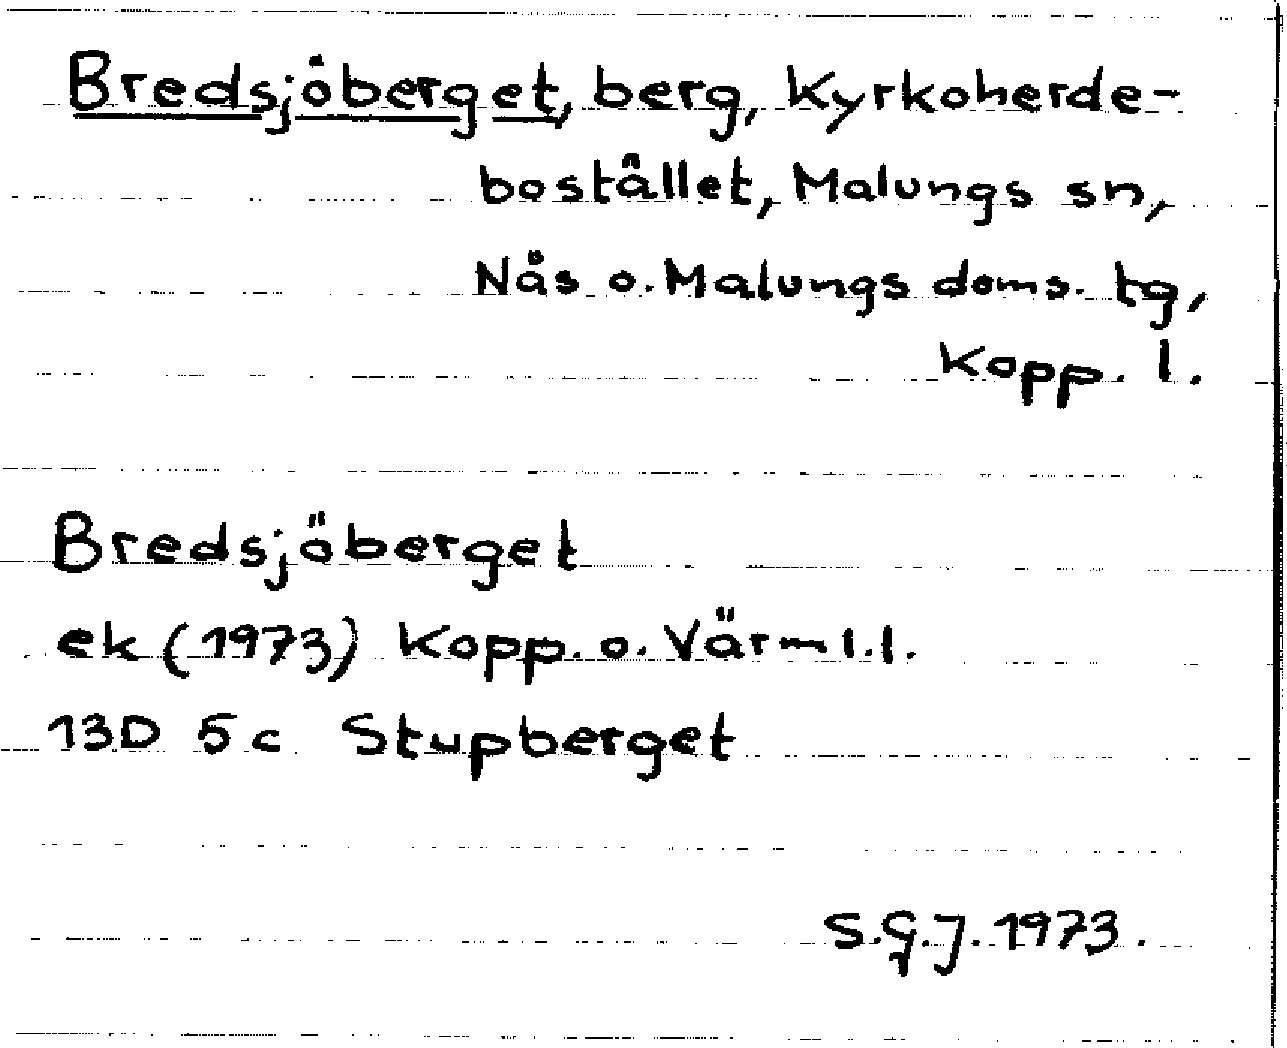 Bredsjöberget, berg, Kyrkoherde-
bostället, Malungs sn,
Näs o. Malungs doms. tg,
Kopp. l.
Bredsjöberget
ek (1973) Kopp. o. Värml. l.
13D 5c Stupberget
S.G.J. 1973.